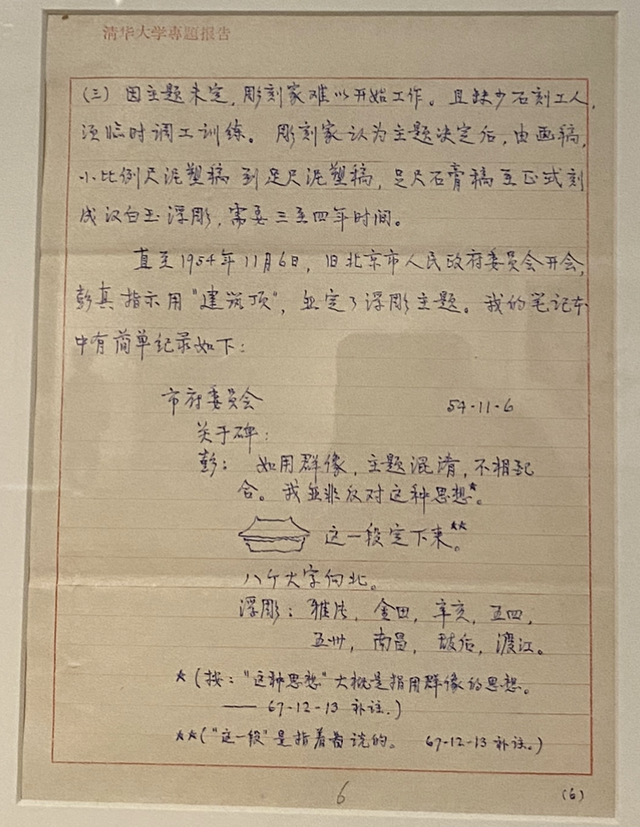 清华大学專題报告
(三) 因主题未定,彫刻家难以开始工作。且缺少石刻工人,
须临时调工训练。彫刻家认为主题决定后,由画稿,
小比例尺泥塑稿到足尺泥塑稿,足尺石膏稿至正式刻
成汉白玉浮彫,需要三至四年时间。
直至1954年11月6日,旧北京市人民政府委员会开会,
彭真指示用"建筑顶",並定了浮彫主题。我的笔记本
中有简单纪录如下:
市府委员会 54-11-6
关于碑:
彭: 如用群像,主题混淆,不相配
合。我並非反对这种思想*。
这一段定下来**。
八个大字向北。
浮彫:雅片,金田,辛亥,五四,
五卅,南昌,敌后,渡江。
*(按:"这种思想"大概是指用群像的思想。
—— 67-12-13 补注.)
**("这一段"是指着图说的。 67-12-13 补注.)
6
(6)